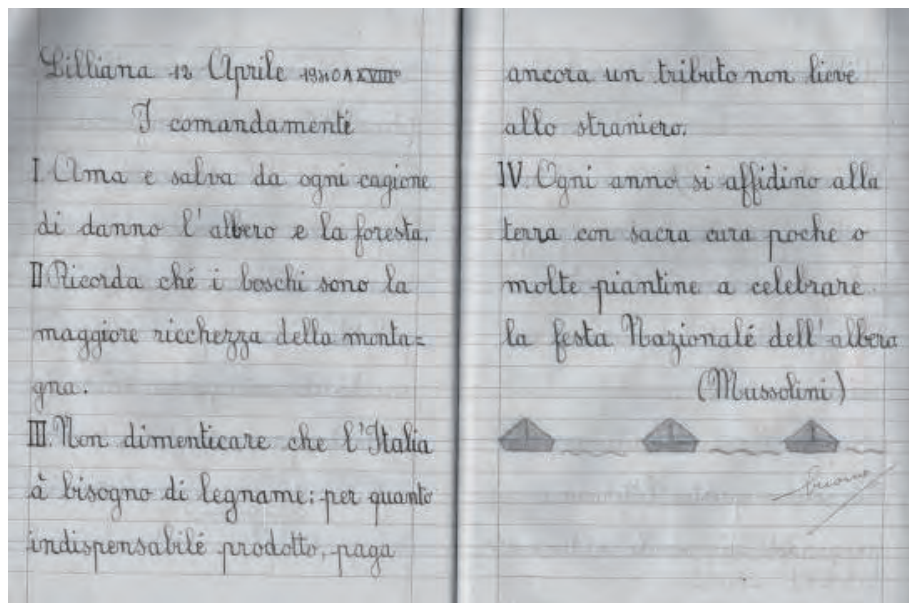 Lilliana 12 Aprile 1940 A XVIII°
I comandamenti
I. Ama e salva da ogni cagione
di danno l'albero e la foresta.
II Ricorda ché i boschi sono la
maggiore ricchezza della monta=
gna.
III. Non dimenticare che l'Italia
à bisogno di legname: per quanto
indispensabilé prodotto, paga
ancora un tributo non lieve
allo straniero.
IV. Ogni anno si affidino alla
terra con sacra cura poche o
molte piantine a celebrare
la festa Nazionalé dell'albero
(Mussolini)